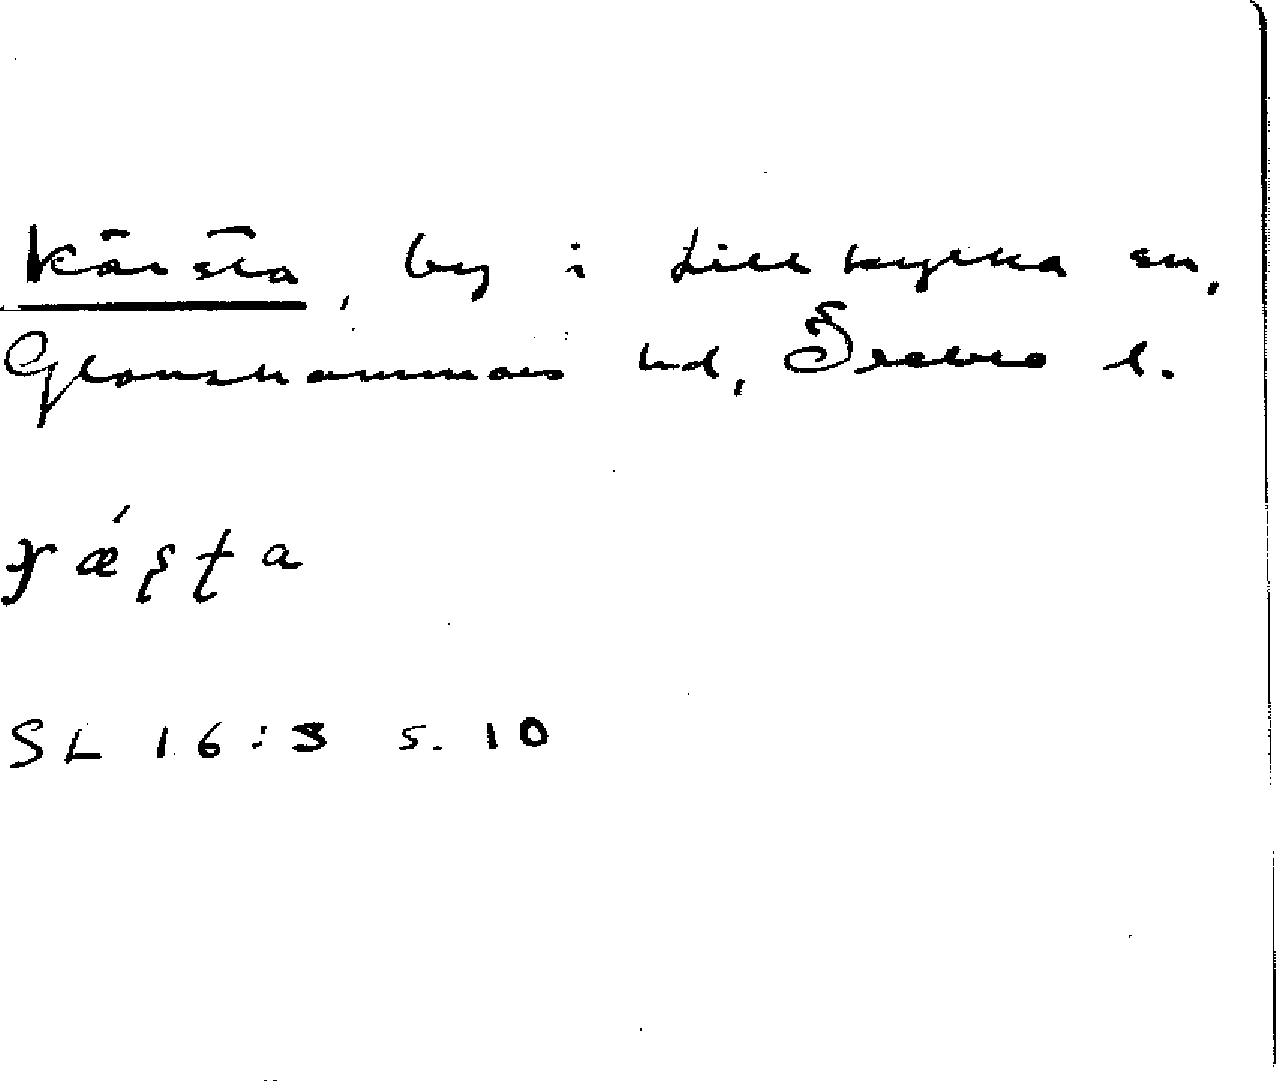 Kärsta, by i Lillkyrka sn,
Glanshammars hd, Örebro l.
SL 16:3 s. 10